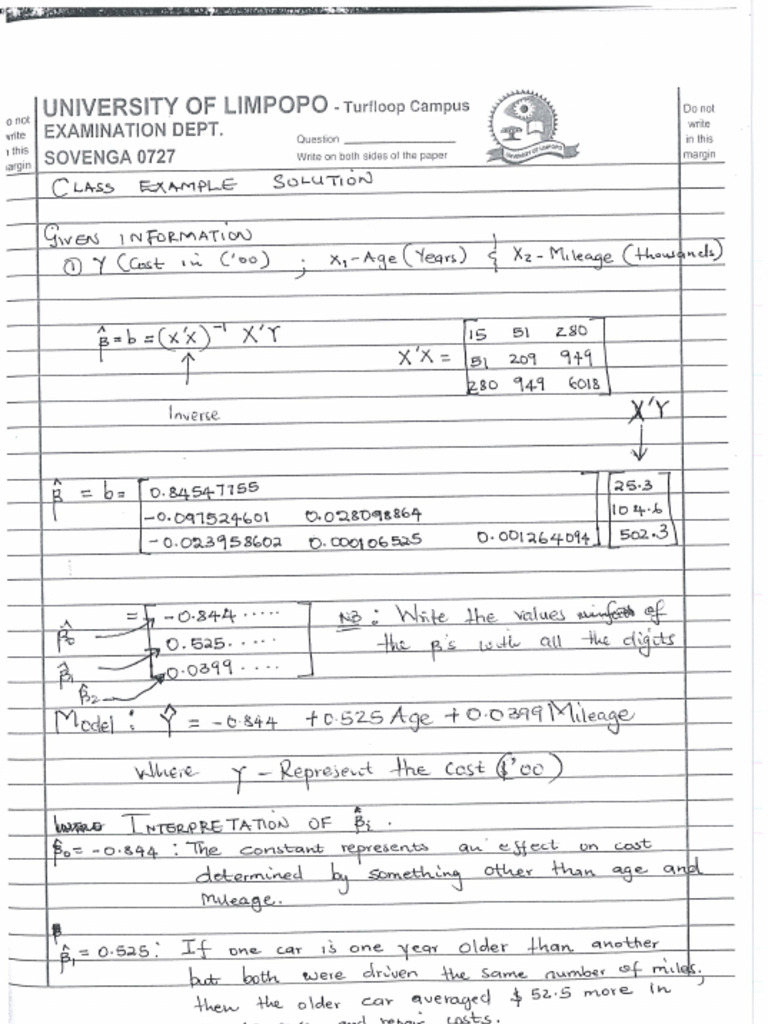 UNIVERSITY OF LIMPOPO - Turfloop Campus
EXAMINATION DEPT.
Question
SOVENGA 0727
Write on both sides of the paper
UNIVERSITY OF LIMPOPO
o not
write
this
argin
Do not
write
in this
margin
CLASS EXAMPLE SOLUTION
GIVEN INFORMATION
① Y (Cost in ('00) ; X₁-Age (Years) & X₂-Mileage (thousands)
β̂ = b = (X'X)⁻¹ X'Y
Inverse
X'X = [15 51 280
51 209 949
280 949 6018]
X'Y
β̂ = b = [0.84547755
-0.097524601 0.028098864
-0.023958602 0.000106525 0.001264094] [25.3
104.6
502.3]
= [-0.844 .....
0.525. ....
0.0399 ....]
β̂₀
β̂₁
β̂₂
NB: Write the values of
the β's with all the digits
Model: Ŷ = -0.844 + 0.525 Age + 0.0399 Mileage
Where Y - Represent the Cost ($'00)
INTERPRETATION OF β̂ᵢ.
β̂₀ = -0.844 : The constant represents an effect on cost
determined by something other than age and
mileage.
β̂₁ = 0.525: If one car is one year older than another
but both were driven the same number of miles,
then the older car averaged $ 52.5 more in
and repair costs.